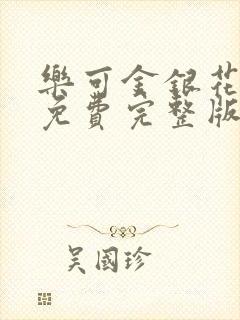 樂可金銀花
免費完整版
吴國珍